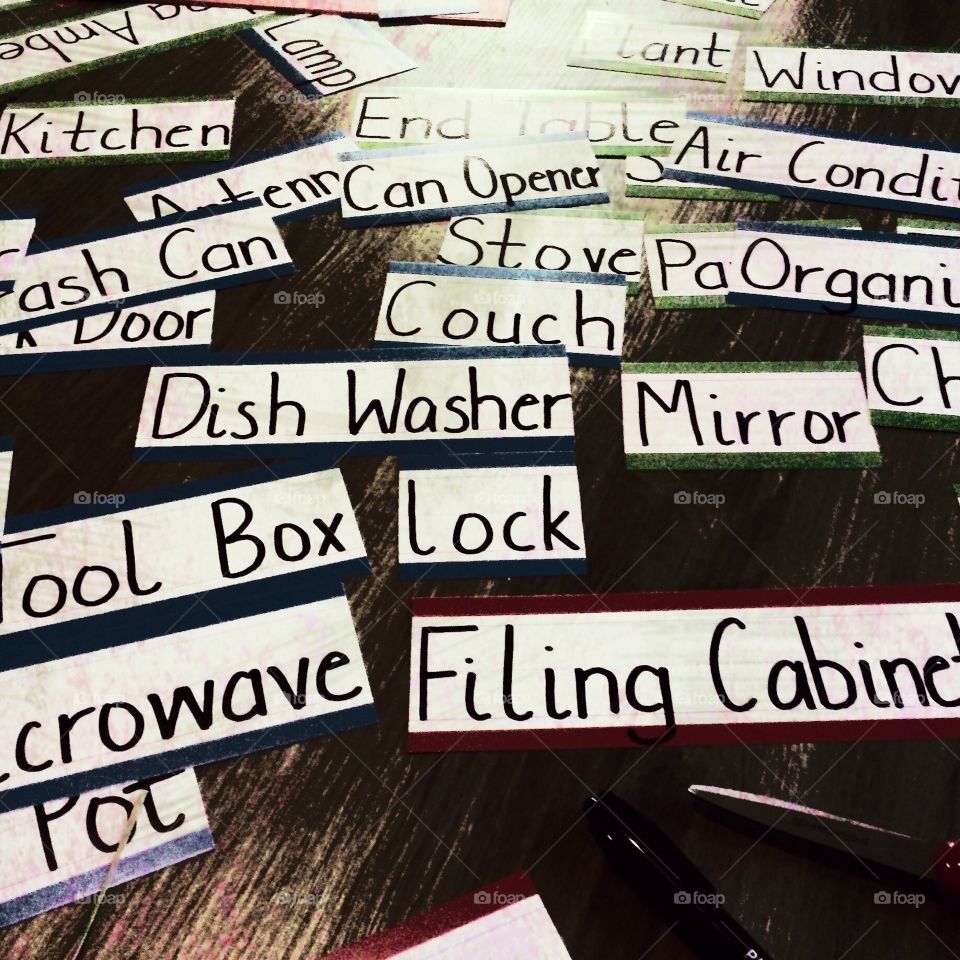 Lamp
lant
Window
Kitchen
End Table
Can Opener
Air Condit
ash Can
Stove
Pa
Organi
Door
Couch
Ch
Dish Washer
Mirror
Tool Box
lock
crowave
Filing Cabinet
Pot